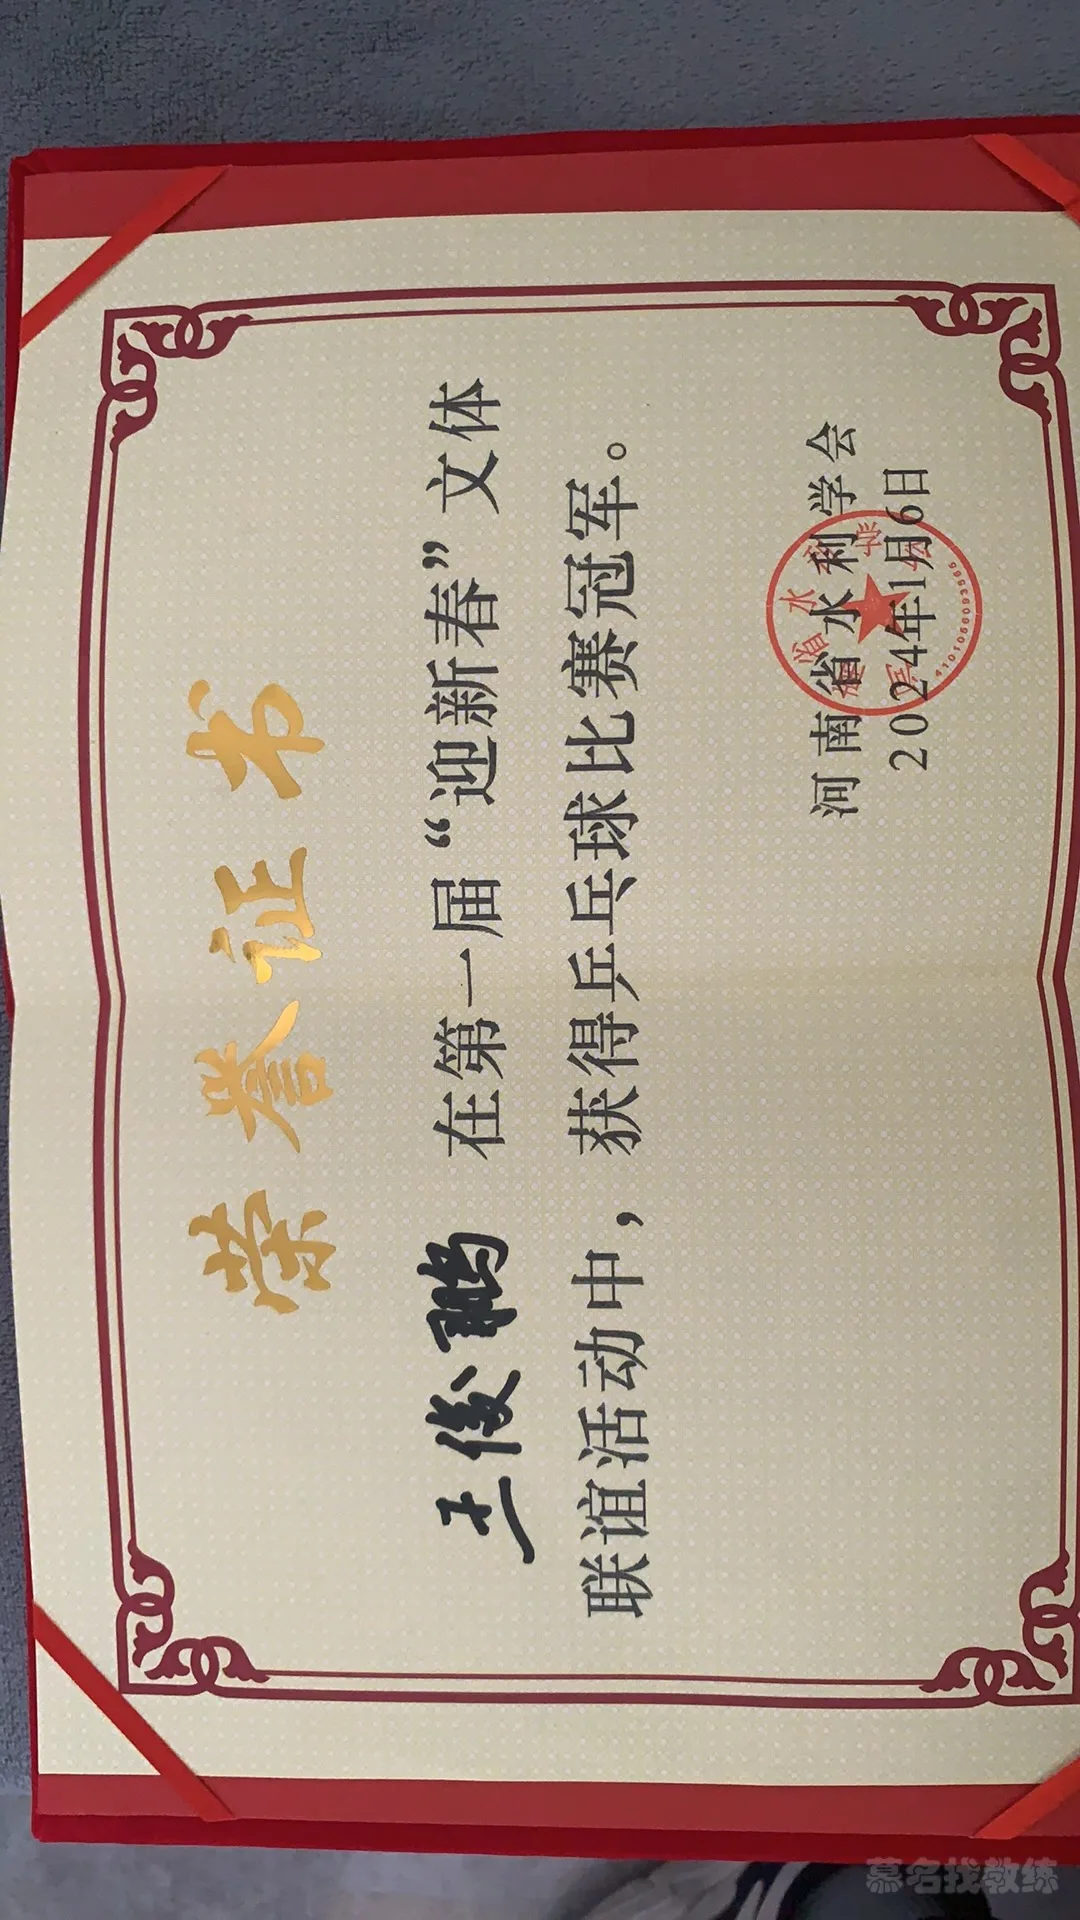 荣誉证书
王俊鹏 在第一届“迎新春”文体
联谊活动中，获得乒乓球比赛冠军。
河南省水利学会
2024年1月6日
慕名找教练